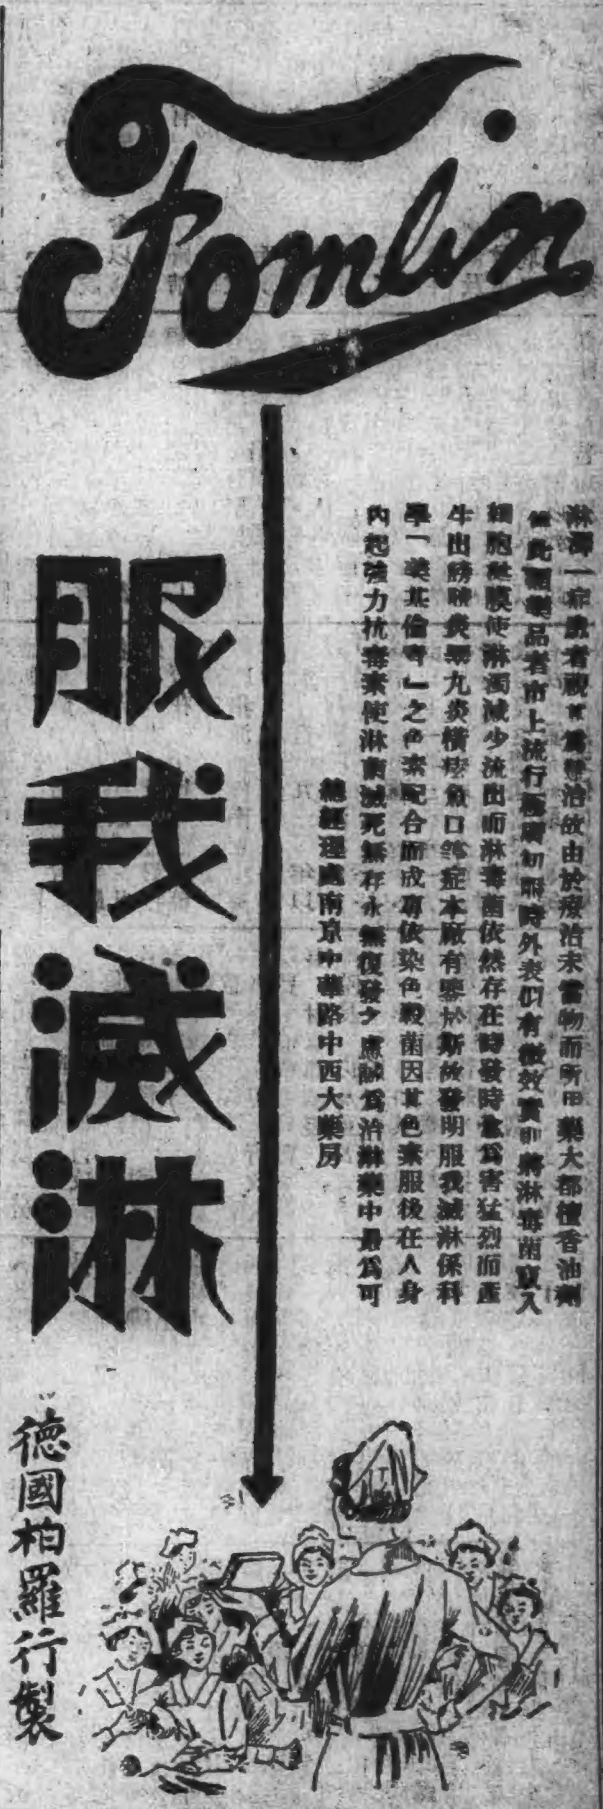 Fomlin
淋濁一症患者視為難治故由於療治未當物而所用藥大都檀香油劑
但此種藥品者市上流行極廣初服時外表似有微效實即將淋毒菌竄入
細胞組膜使淋濁減少流出而淋毒菌依然存在時發時愈為害猛烈而產
生出膀胱炎睪丸炎橫痃魚口等症本廠有鑒於斯故發明服我滅淋係科
學「藥基倫青」之色素配合而成功依染色殺菌因其色素服後在人身
內起強力抗毒素使淋菌滅死無存永無復發之慮誠為治淋藥中最為可
總經理處南京中華路中西大藥房
服我滅淋
德國柏羅行製